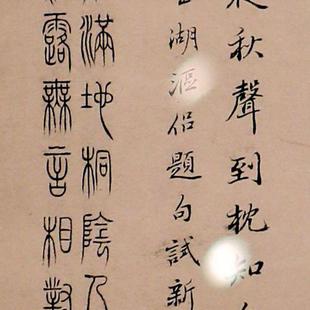 秋聲到枕知
湖漚侣題句試新
滿地桐陰人
露無言相對